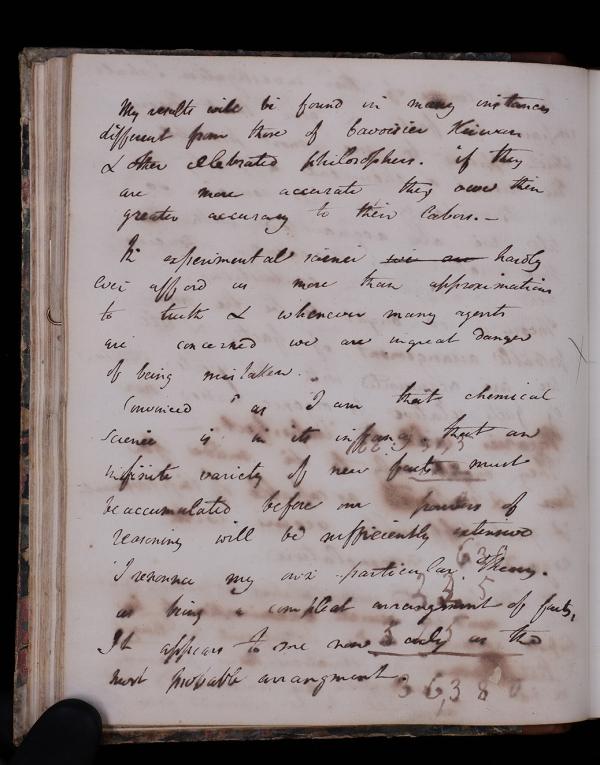 My results will be found in many instances
different from those of Lavoisier Kirwan
& other celebrated philosophers. if they
are more accurate they owe their
greater accuracy to their labors. –
In experimental science hardly
ever afford us more than approximations
to truth & whenever many agents
are concerned we are in great danger
of being mistaken.
Convinced as I am that chemical
science is in its infancy. that an
infinite variety of new facts must
be accumulated before our powers of
reasoning will be sufficiently extensive
I renounce my own particular Theory.
as being a compleat arrangment of facts,
It appears to me now only as the
most probable arrangment.